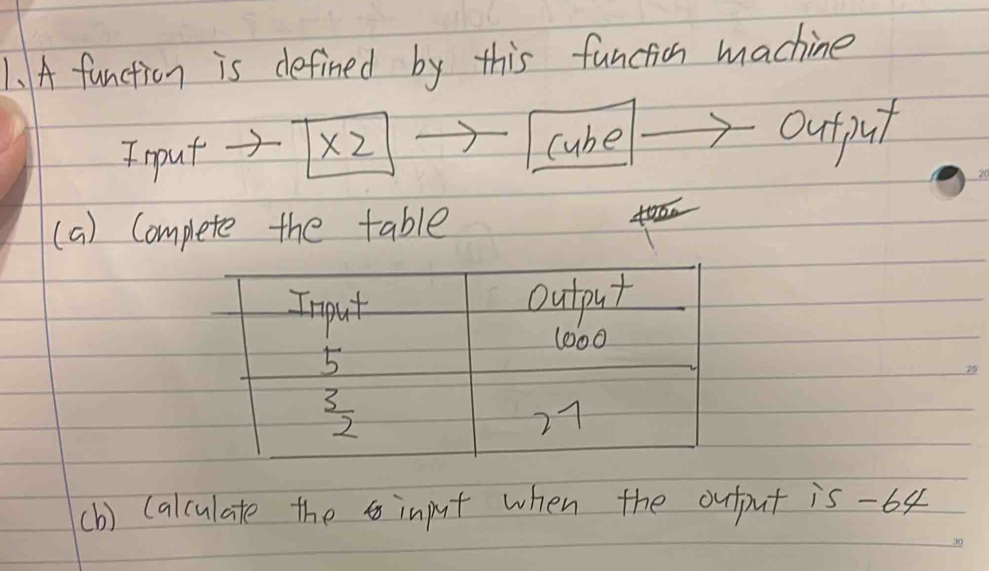 1. A function is defined by this function machine
Input → ×2 → Cube → Output
(a) Complete the table
Input Output
5 1000
3/2 27
(b) Calculate the input when the output is -64
20
25
30